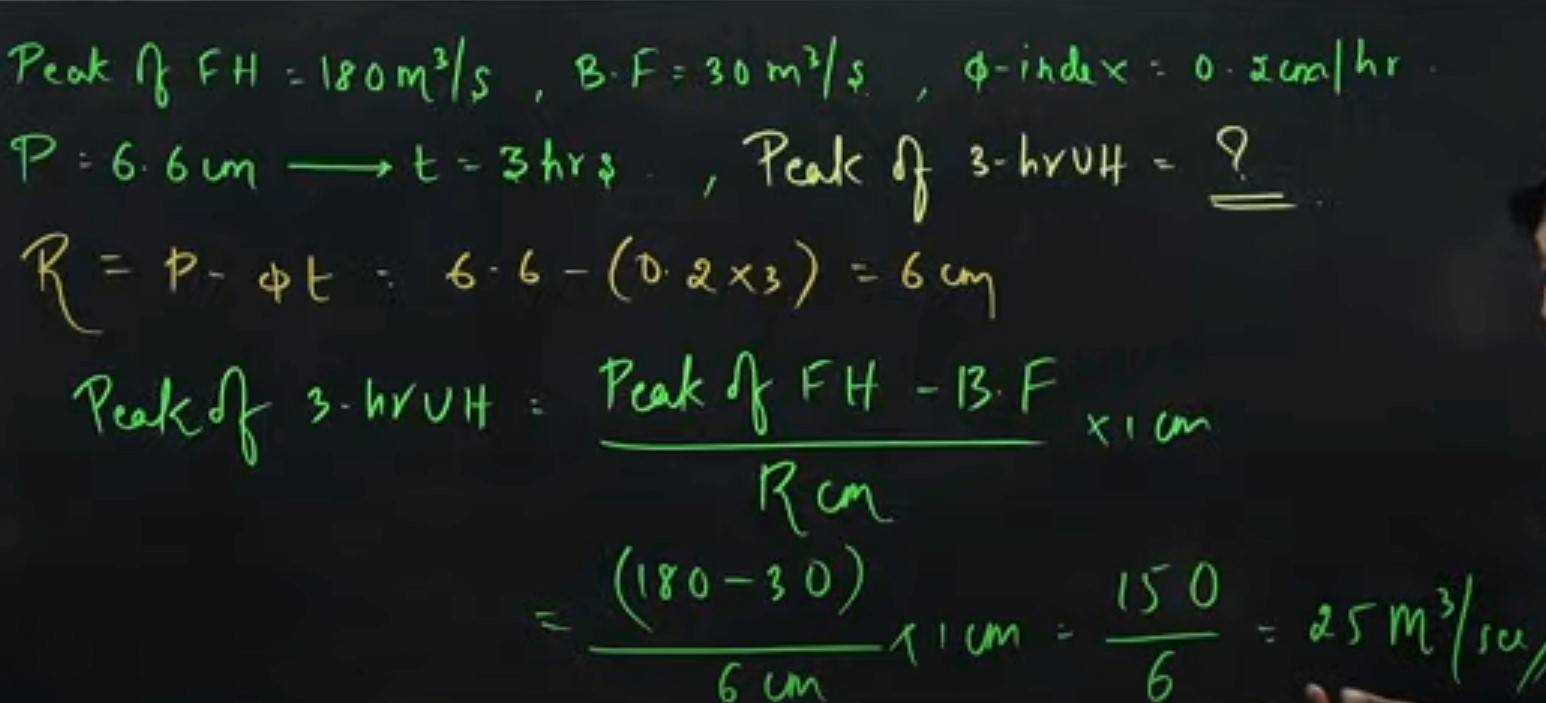 Peak of FH = 180 m³/s , B.F = 30 m³/s , φ-index = 0.2 cm/hr .
P = 6.6 cm ⟶ t = 3 hrs . , Peak of 3-hr UH = ? .
R = P - φt = 6.6 - (0.2×3) = 6 cm
Peak of 3-hr UH = Peak of FH - B.F / R cm × 1 cm
= (180-30) / 6 cm × 1 cm = 150 / 6 = 25 m³/sec //